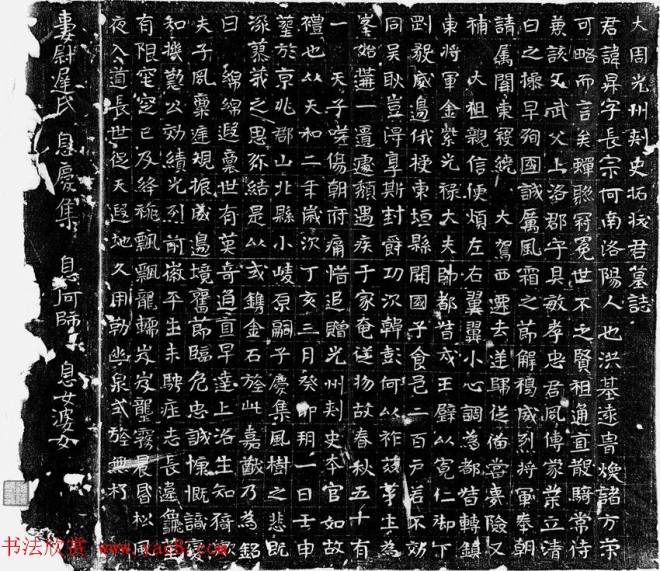 大周光州刾史拓拔君墓誌
君諱昇字長宗河南洛陽人也洪基遠胄煥諸方策
可略而言矣蟬聯冠冕世不乏賢祖通直散騎常侍
兼談文武父上洛郡守具敏孝忠君夙傳家業立清
白之操早殉國誠厲風霜之節解褐威烈將軍奉朝
請屬關東褑繞 大駕西遷去逆歸從備嘗夷險又
補 大祖親信便煩左右翼翼小心調為都督轉鎮
東將軍金紫光祿大夫帥都督戍王壁以寬仁御下
剛毅威邊俄授東垣縣開國子食邑二百戶若不効
同吳耿豈得享斯封爵功次韓彭何以祚茲茅土為
一遘癘頹遇疾于家奄從物故春秋五十有
一 天子嗟傷朝府痛惜追贈光州刾史本官如故
禮也以天和二年歲次丁亥三月癸卯朔一日壬申
塟於京兆郡山北縣小崚原嗣子慶集風樹之悲既
深蓼莪之思弥結是以式鐫金石旌此嘉猷乃為銘
曰 綿綿遐裔世有英奇通直早達上洛生知猗歟
夫子風稟准規振威邊境奮節臨危忠誠慷慨識變
知機勤公効績光列前徽平生未騁疾志長違龜筮
有限窀穸已及絳旐飄飄龍轜岌岌壟霧晨昏松風
夜入道長世促天遐地久用勒幽泉式旌無朽
妻尉遲氏 息慶集 息阿師 息女婆女
书法欣赏 www.yac8.com